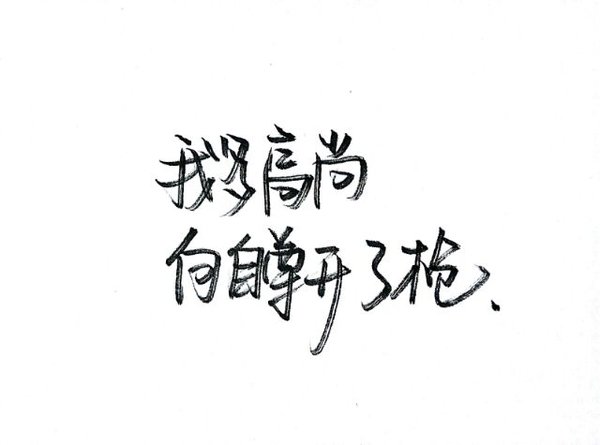 我多高尚
向自尊开了枪、